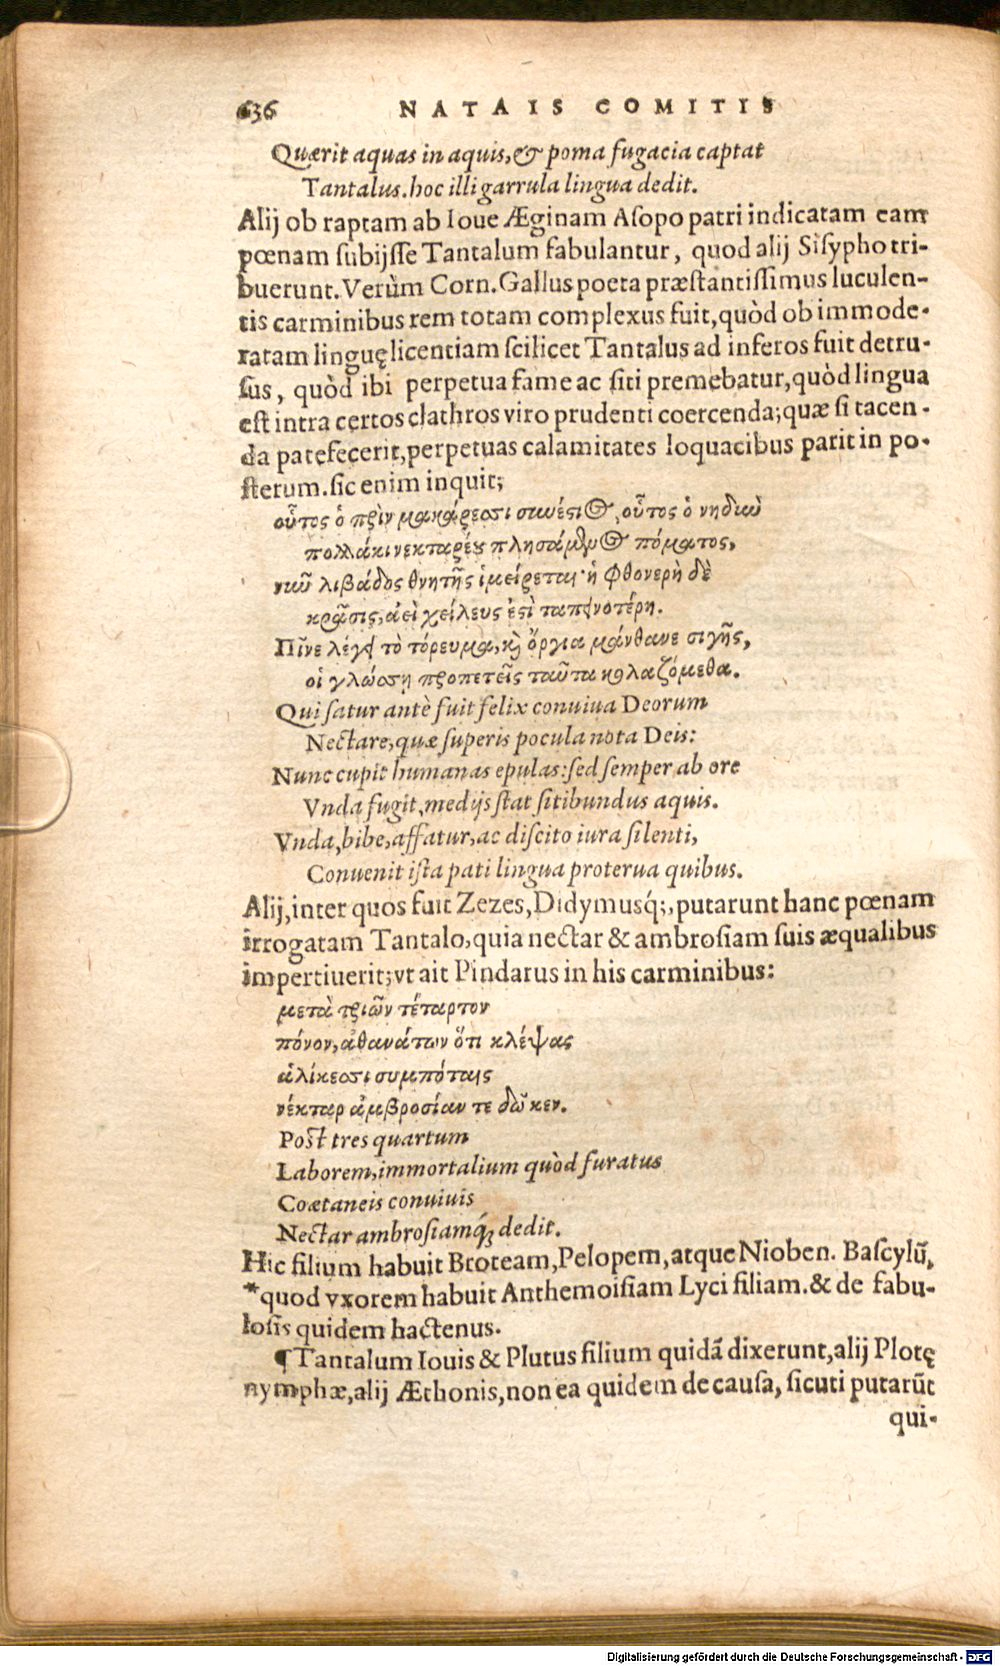 636 NATAIS COMITIS
Quærit aquas in aquis, & poma fugacia captat
Tantalus. hoc illi garrula lingua dedit.
Alij ob raptam ab Ioue Æginam Asopo patri indicatam eam
pœnam subijsse Tantalum fabulantur, quod alij Sisypho tri-
buerunt. Verùm Corn. Gallus poeta præstantissimus luculen-
tis carminibus rem totam complexus fuit, quòd ob immode-
ratam linguę licentiam scilicet Tantalus ad inferos fuit detru-
sus, quòd ibi perpetua fame ac siti premebatur, quòd lingua
est intra certos clathros viro prudenti coercenda; quæ si tacen-
da patefecerit, perpetuas calamitates loquacibus parit in po-
sterum. sic enim inquit;
οὗτος ὁ πρὶν μακάρεσσι συνέστιος, οὗτος ὁ νηδιὼ
πολλάκι νεκταρέου πλησάμενος πόματος,
νῦν λιβάδος θνητῆς ἱμείρεται· ἡ φθονερὴ δὲ
κρᾶσις, ἀεὶ χείλευς ἐστὶ ταπεινοτέρη.
Πῖνε λέγει τὸ τόρευμα, καὶ ὄργια μάνθανε σιγῆς,
οἱ γλώσσῃ προπετεῖς ταῦτα κολαζόμεθα.
Qui satur antè fuit felix conuiua Deorum
Nectare, quæ superis pocula nota Deis:
Nunc cupit humanas epulas: sed semper ab ore
Vnda fugit, medijs stat sitibundus aquis.
Vnda, bibe, affatur, ac discito iura silenti,
Conuenit ista pati lingua proterua quibus.
Alij, inter quos fuit Zezes, Didymusq́;, putarunt hanc pœnam
irrogatam Tantalo, quia nectar & ambrosiam suis æqualibus
impertiuerit; vt ait Pindarus in his carminibus:
μετὰ τριῶν τέταρτον
πόνον, ἀθανάτων ὅτι κλέψας
ἁλίκεσσι συμπόταις
νέκταρ ἀμβροσίαν τε δῶκεν.
Post tres quartum
Laborem, immortalium quòd furatus
Coætaneis conuiuis
Nectar ambrosiamq́; dedit.
Hic filium habuit Broteam, Pelopem, atque Nioben. Bascylū,
*quod vxorem habuit Anthemoisiam Lyci filiam. & de fabu-
losis quidem hactenus.
¶Tantalum Iouis & Plutus filium quidā dixerunt, alij Plotę
nymphæ, alij Æthonis, non ea quidem de causa, sicuti putarūt
qui-
Digitalisierung gefördert durch die Deutsche Forschungsgemeinschaft - DFG